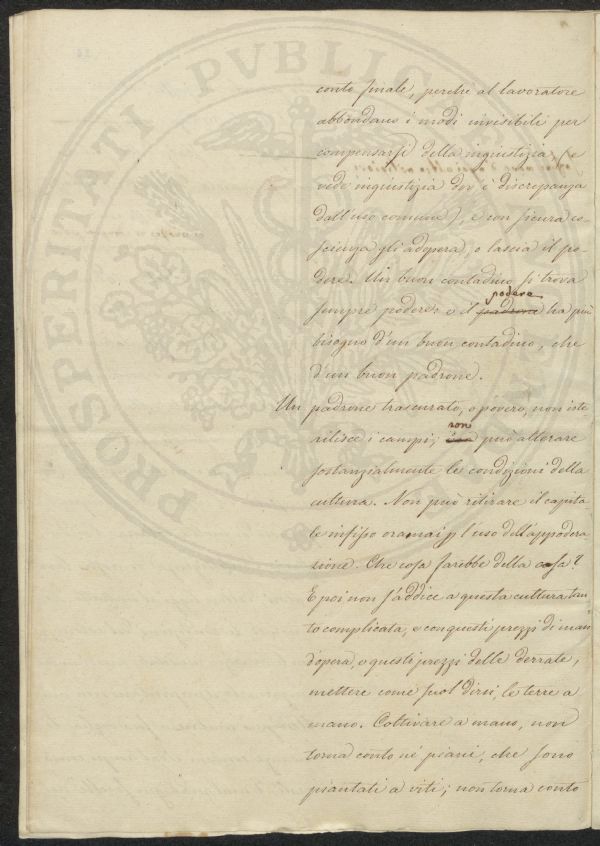 PROSPERITATI PVBLICAE
conto finale, perchè al lavoratore
abbondano i modi invisibili per
compensarsi della ingiustizia (e
vede ingiustizia dov'è discrepanza
dall'uso comune), e con sicura co-
scienza gli adopera, o lascia il po-
dere. Un buon contadino si trova
podere
sempre podere; e il padrone ha più
bisogno d'un buon contadino, che
d'un buon padrone.
Un padrone trascurato, o povero, non iste
rilisce i campi; non può alterare
sostanzialmente le condizioni della
cultura. Non può ritirare il capita-
le infisso oramai p l'uso dell'appodera
zione. Che cosa farebbe della casa?
E poi non s'addice a questa cultura tan-
to complicata, e con questi prezzi di man
d'opera, e questi prezzi delle derrate,
mettere come suol dirsi, le terre a
mano. Coltivare a mano, non
torna conto nè piani, che sono
piantati a viti; non torna conto